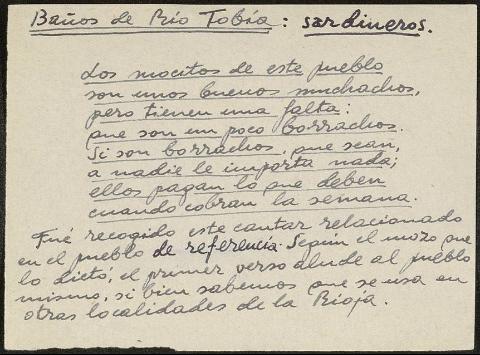 Baños de Río Tobía: sardineros.
Los mocitos de este pueblo
son unos buenos muchachos,
pero tienen una falta:
que son un poco borrachos.
Si son borrachos, que sean,
a nadie le importa nada;
ellos pagan lo que deben
cuando cobran la semana.
Fué recogido este cantar relacionado
en el pueblo de referencia. Segun el mozo que
lo dictó, el primer verso alude al pueblo
mismo, si bien sabemos que se usa en
otras localidades de la Rioja.